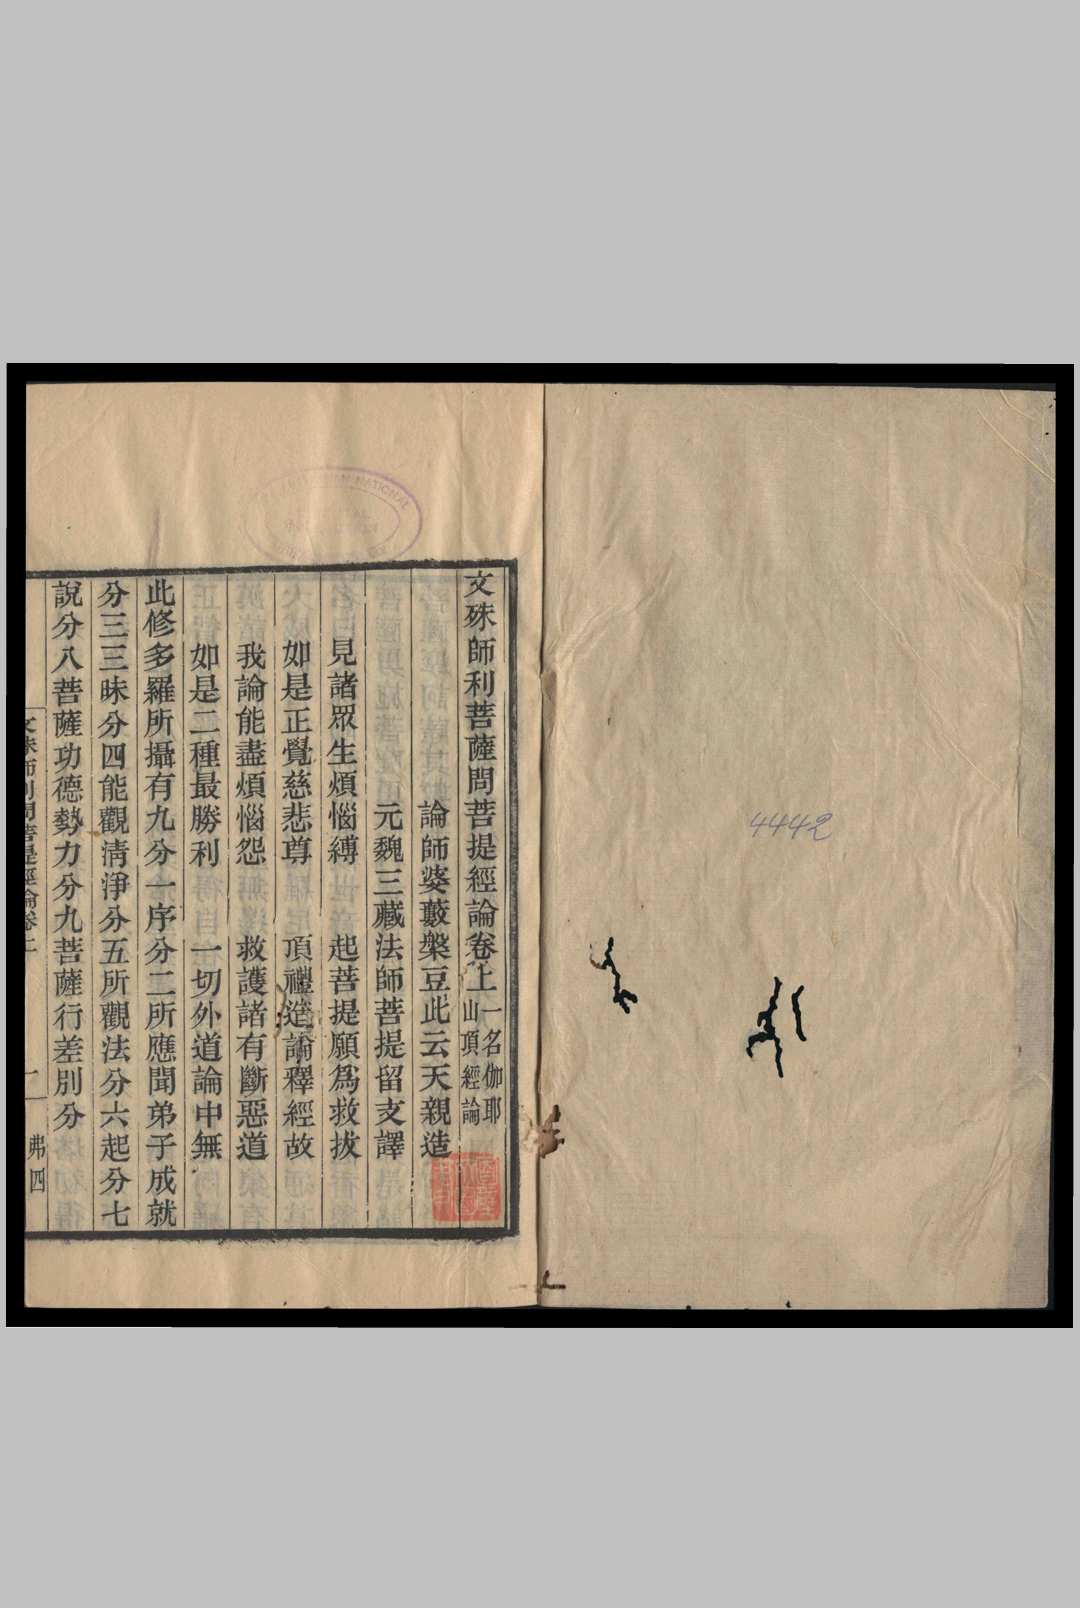 4442
文殊師利菩薩問菩提經論卷上 一名伽耶
山頂經論
論師婆藪槃豆此云天親造
元魏三藏法師菩提留支譯
見諸眾生煩惱縛 起菩提願為救拔
如是正覺慈悲尊 頂禮造論釋經故
我論能盡煩惱怨 救護諸有斷惡道
如是二種最勝利 一切外道論中無
此修多羅所攝有九分一序分二所應聞弟子成就
分三三昧分四能觀清淨分五所觀法分六起分七
說分八菩薩功德勢力分九菩薩行差別分
文殊師利問菩提經論卷上 一 弗四
NATIONAL